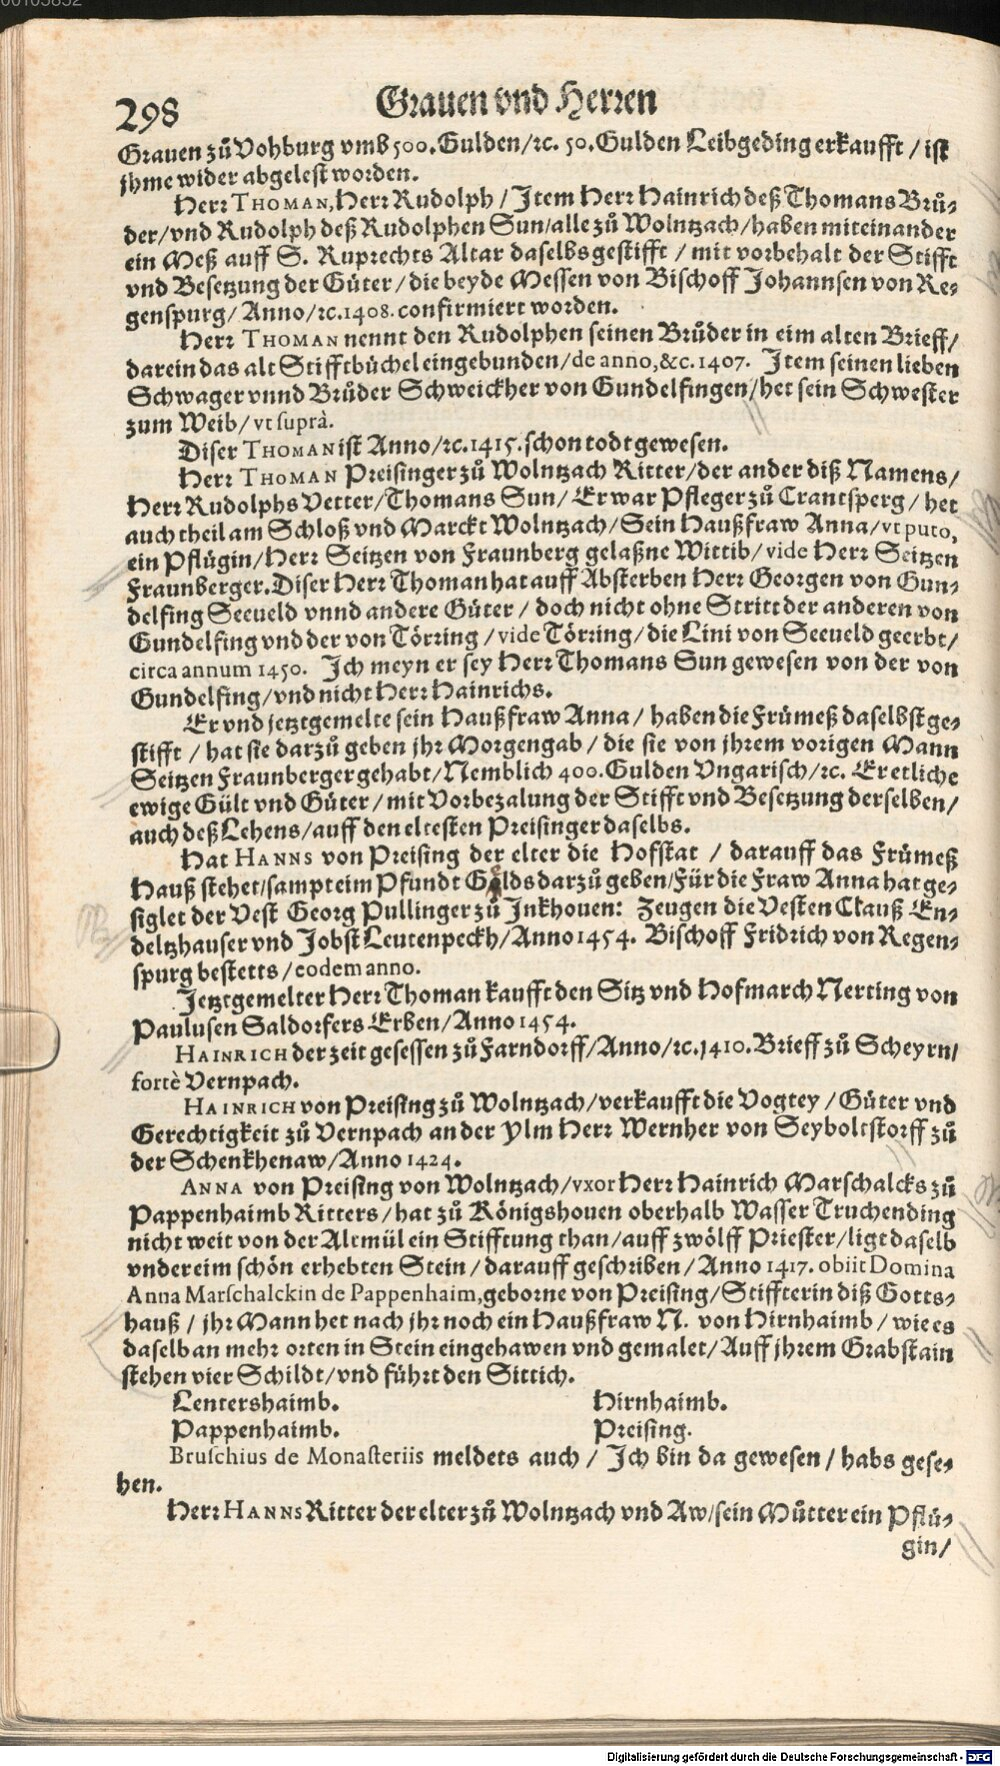 00103852
298
Grauen vnd Herren
Grauen zů Vohburg vmb 500. Gulden/ ꝛc. 50. Gulden Leibgeding erkaufft / ist
jhme wider abgelest worden.
Herr THOMAN, Herr Rudolph / Item Herr Hainrich deß Thomans Brů-
der/ vnd Rudolph deß Rudolphen Sun/ alle zů Wolntzach/ haben miteinander
ein Meß auff S. Ruprechts Altar daselbs gestifft / mit vorbehalt der Stifft
vnd Besetzung der Güter / die beyde Messen von Bischoff Johannsen von Re-
genspurg/ Anno/ ꝛc. 1408. confirmiert worden.
Herr THOMAN nennt den Rudolphen seinen Brůder in eim alten Brieff/
darein das alt Stifftbüchel eingebunden/ de anno, &c. 1407. Item seinen lieben
Schwager vnnd Brůder Schweickher von Gundelfingen/ het sein Schwester
zum Weib/ vt suprà.
Diser THOMAN ist Anno/ ꝛc. 1415. schon todt gewesen.
Herr THOMAN Preisinger zů Wolntzach Ritter/ der ander diß Namens/
Herr Rudolphs Vetter/ Thomans Sun/ Er war Pfleger zů Crantsperg / het
auch theil am Schloß vnd Marckt Wolntzach/ Sein Haußfraw Anna/ vt puto,
ein Pflügin/ Herr Seitzen von Fraunberg gelaßne Wittib/ vide Herr Seitzen
Fraunberger. Diser Herr Thoman hat auff Absterben Herr Georgen von Gun-
delfing Seeueld vnnd andere Güter / doch nicht ohne Stritt der anderen von
Gundelfing vnd der von Törring / vide Törring/ die Lini von Seeueld geerbt/
circa annum 1450. Ich meyn er sey Herr Thomans Sun gewesen von der von
Gundelfing/ vnd nicht Herr Hainrichs.
Er vnd jetztgemelte sein Haußfraw Anna / haben die Frümeß daselbst ge-
stifft / hat sie darzů geben jhr Morgengab / die sie von jhrem vorigen Mann
Seitzen Fraunberger gehabt/ Nemblich 400. Gulden Vngarisch/ ꝛc. Er etliche
ewige Gült vnd Güter / mit Vorbezalung der Stifft vnd Besetzung derselben/
auch deß Lehens/ auff den eltesten Preisinger daselbs.
Hat HANNS von Preising der elter die Hofstat / darauff das Frümeß
Hauß stehet/ sampt eim Pfundt Gelds darzů geben/ Für die Fraw Anna hat ge-
siglet der Vest Georg Pullinger zů Inkhouen: Zeugen die Vesten Clauß En-
deltzhauser vnd Jobst Leutenpeckh/ Anno 1454. Bischoff Fridrich von Regen-
spurg bestetts / eodem anno.
Jetztgemelter Herr Thoman kaufft den Sitz vnd Hofmarch Nerting von
Paulusen Saldorfers Erben/ Anno 1454.
HAINRICH der zeit gesessen zů Farndorff/ Anno/ ꝛc. 1410. Brieff zů Scheyrn/
fortè Vernpach.
HAINRICH von Preising zů Wolntzach/ verkaufft die Vogtey / Güter vnd
Gerechtigkeit zů Vernpach an der Ylm Herr Wernher von Seyboltstorff zů
der Schenkhenaw/ Anno 1424.
ANNA von Preising von Wolntzach/ vxor Herr Hainrich Marschalcks zů
Pappenhaimb Ritters / hat zů Königshouen oberhalb Wasser Truchending
nicht weit von der Altmül ein Stifftung than/ auff zwölff Priester/ ligt daselb
vnder eim schön erhebten Stein / darauff geschriben / Anno 1417. obiit Domina
Anna Marschalckin de Pappenhaim, geborne von Preising/ Stiffterin diß Gotts-
hauß / jhr Mann het nach jhr noch ein Haußfraw N. von Hirnhaimb / wie es
daselb an mehr orten in Stein eingehawen vnd gemalet/ Auff jhrem Grabstain
stehen vier Schildt/ vnd führt den Sittich.
Lentershaimb. Hirnhaimb.
Pappenhaimb. Preising.
Bruschius de Monasteriis meldets auch / Ich bin da gewesen / habs gese-
hen.
Herr HANNS Ritter der elter zů Wolntzach vnd Aw/ sein Můtter ein Pflü-
gin/
Digitalisierung gefördert durch die Deutsche Forschungsgemeinschaft - DFG